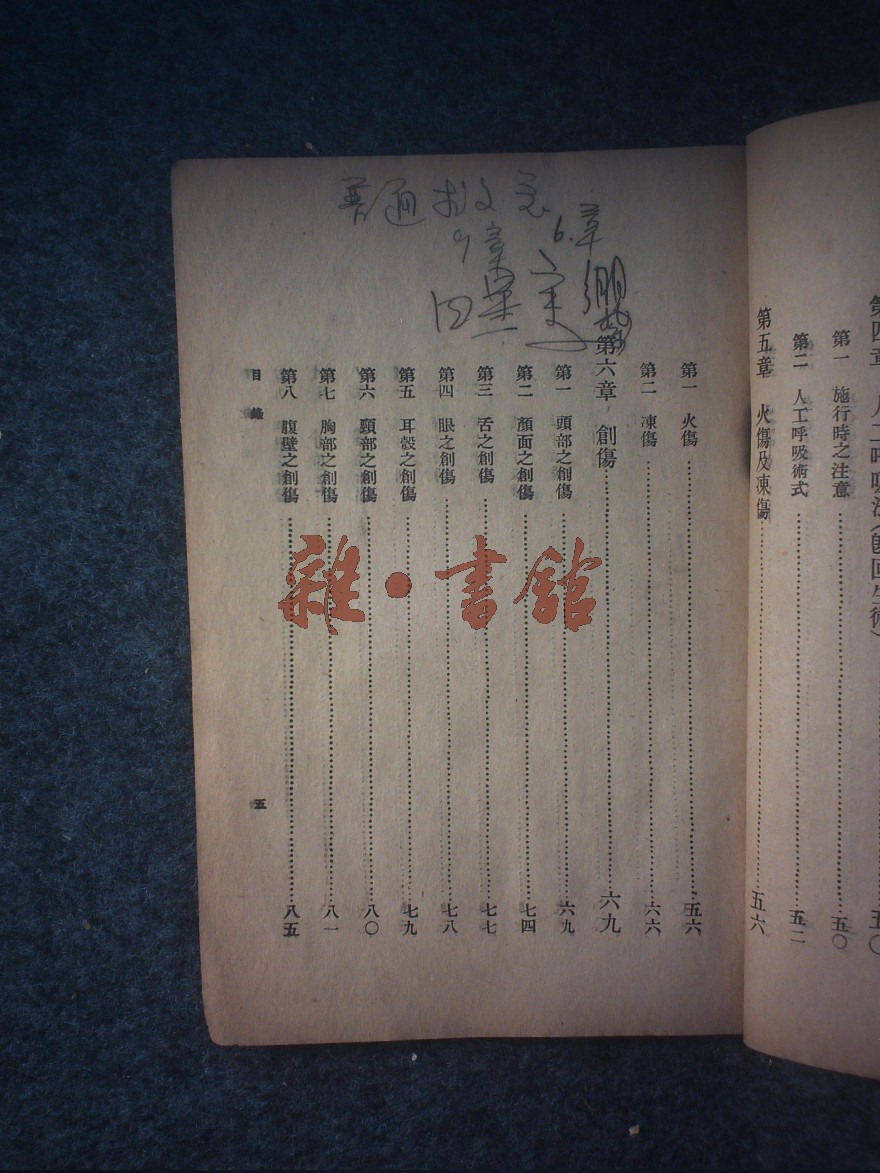 第四章
五〇
第一　施行時之注意……五〇
第二　人工呼吸術式……五二
第五章　火傷及凍傷……五六
普通救急
9章　6.章
第一　火傷……五六
第二　凍傷……六六
第六章　創傷……六九
第一　頭部之創傷……六九
第二　顏面之創傷……七四
第三　舌之創傷……七七
第四　眼之創傷……七八
第五　耳殼之創傷……七九
第六　頸部之創傷……八〇
第七　胸部之創傷……八一
第八　腹壁之創傷……八五
目錄
五
雜·書館